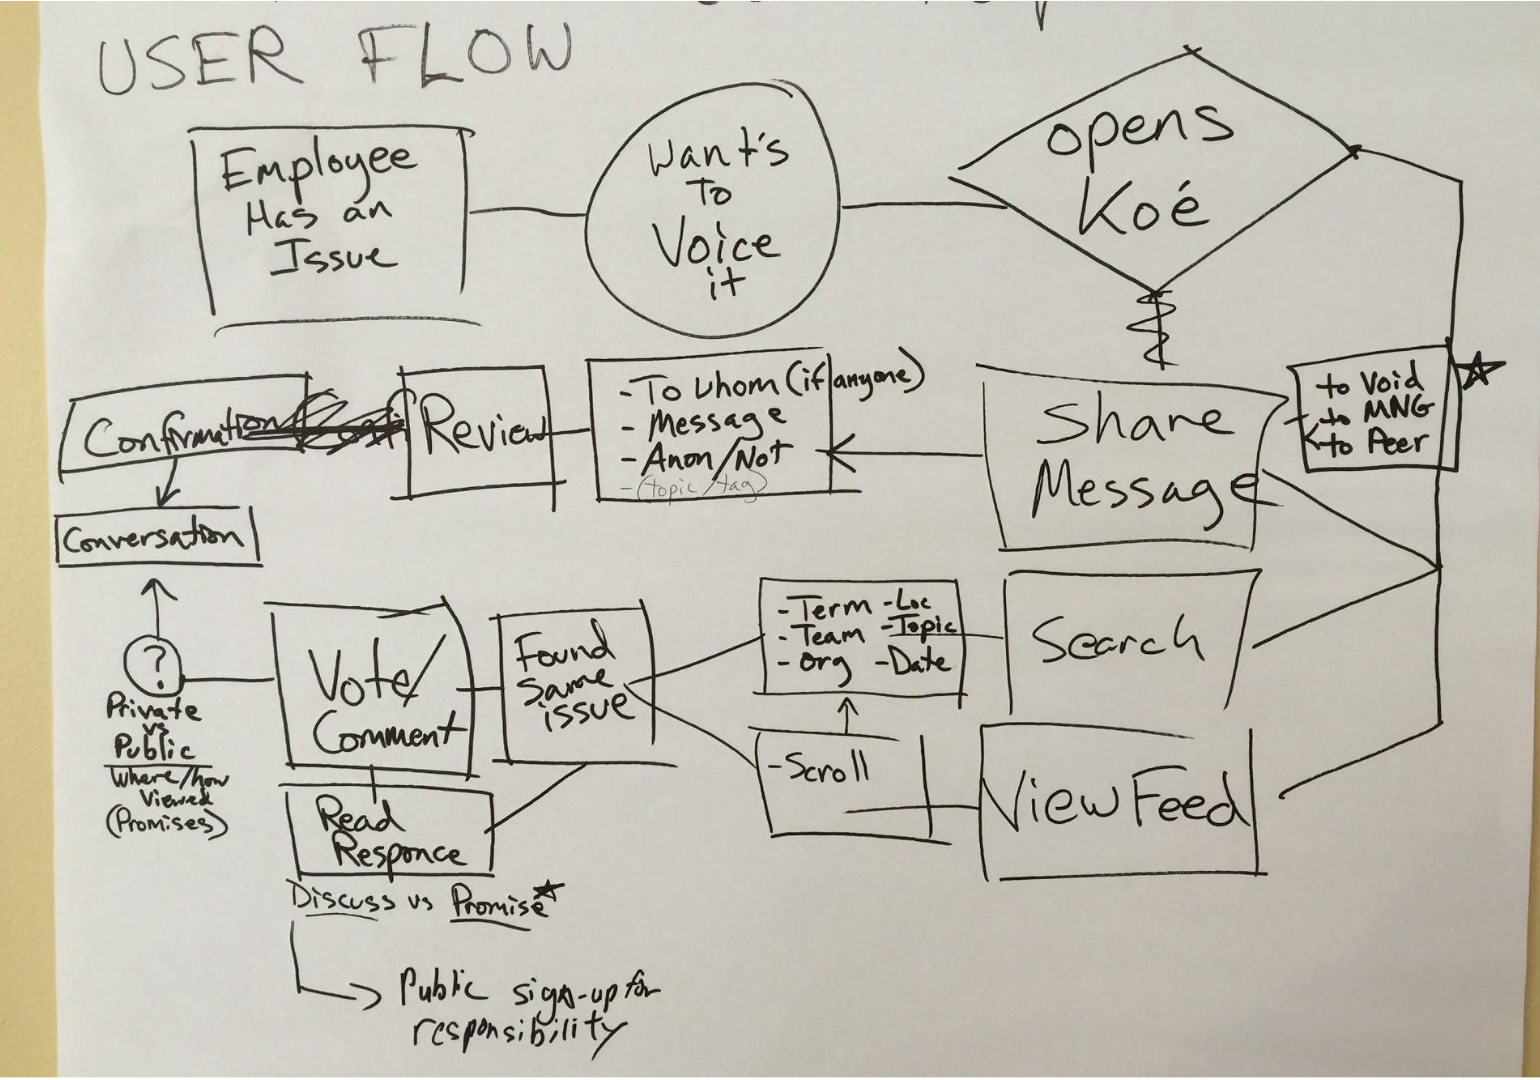 USER FLOW
Employee
Has an
Issue
Want's
To
Voice
it
opens
Koé
Confirmation
Review
- To whom (if anyone)
- Message
- Anon/Not
- (topic/tag)
Share
Message
to Void
to MNG
to Peer
Conversation
?
Private
vs
Public
Where/how
Viewed
(Promises)
Vote/
Comment
Found
Same
issue
- Term - Loc
- Team - Topic
- Org - Date
Search
- Scroll
View Feed
Read
Responce
Discuss vs Promise
Public sign-up for
responsibility